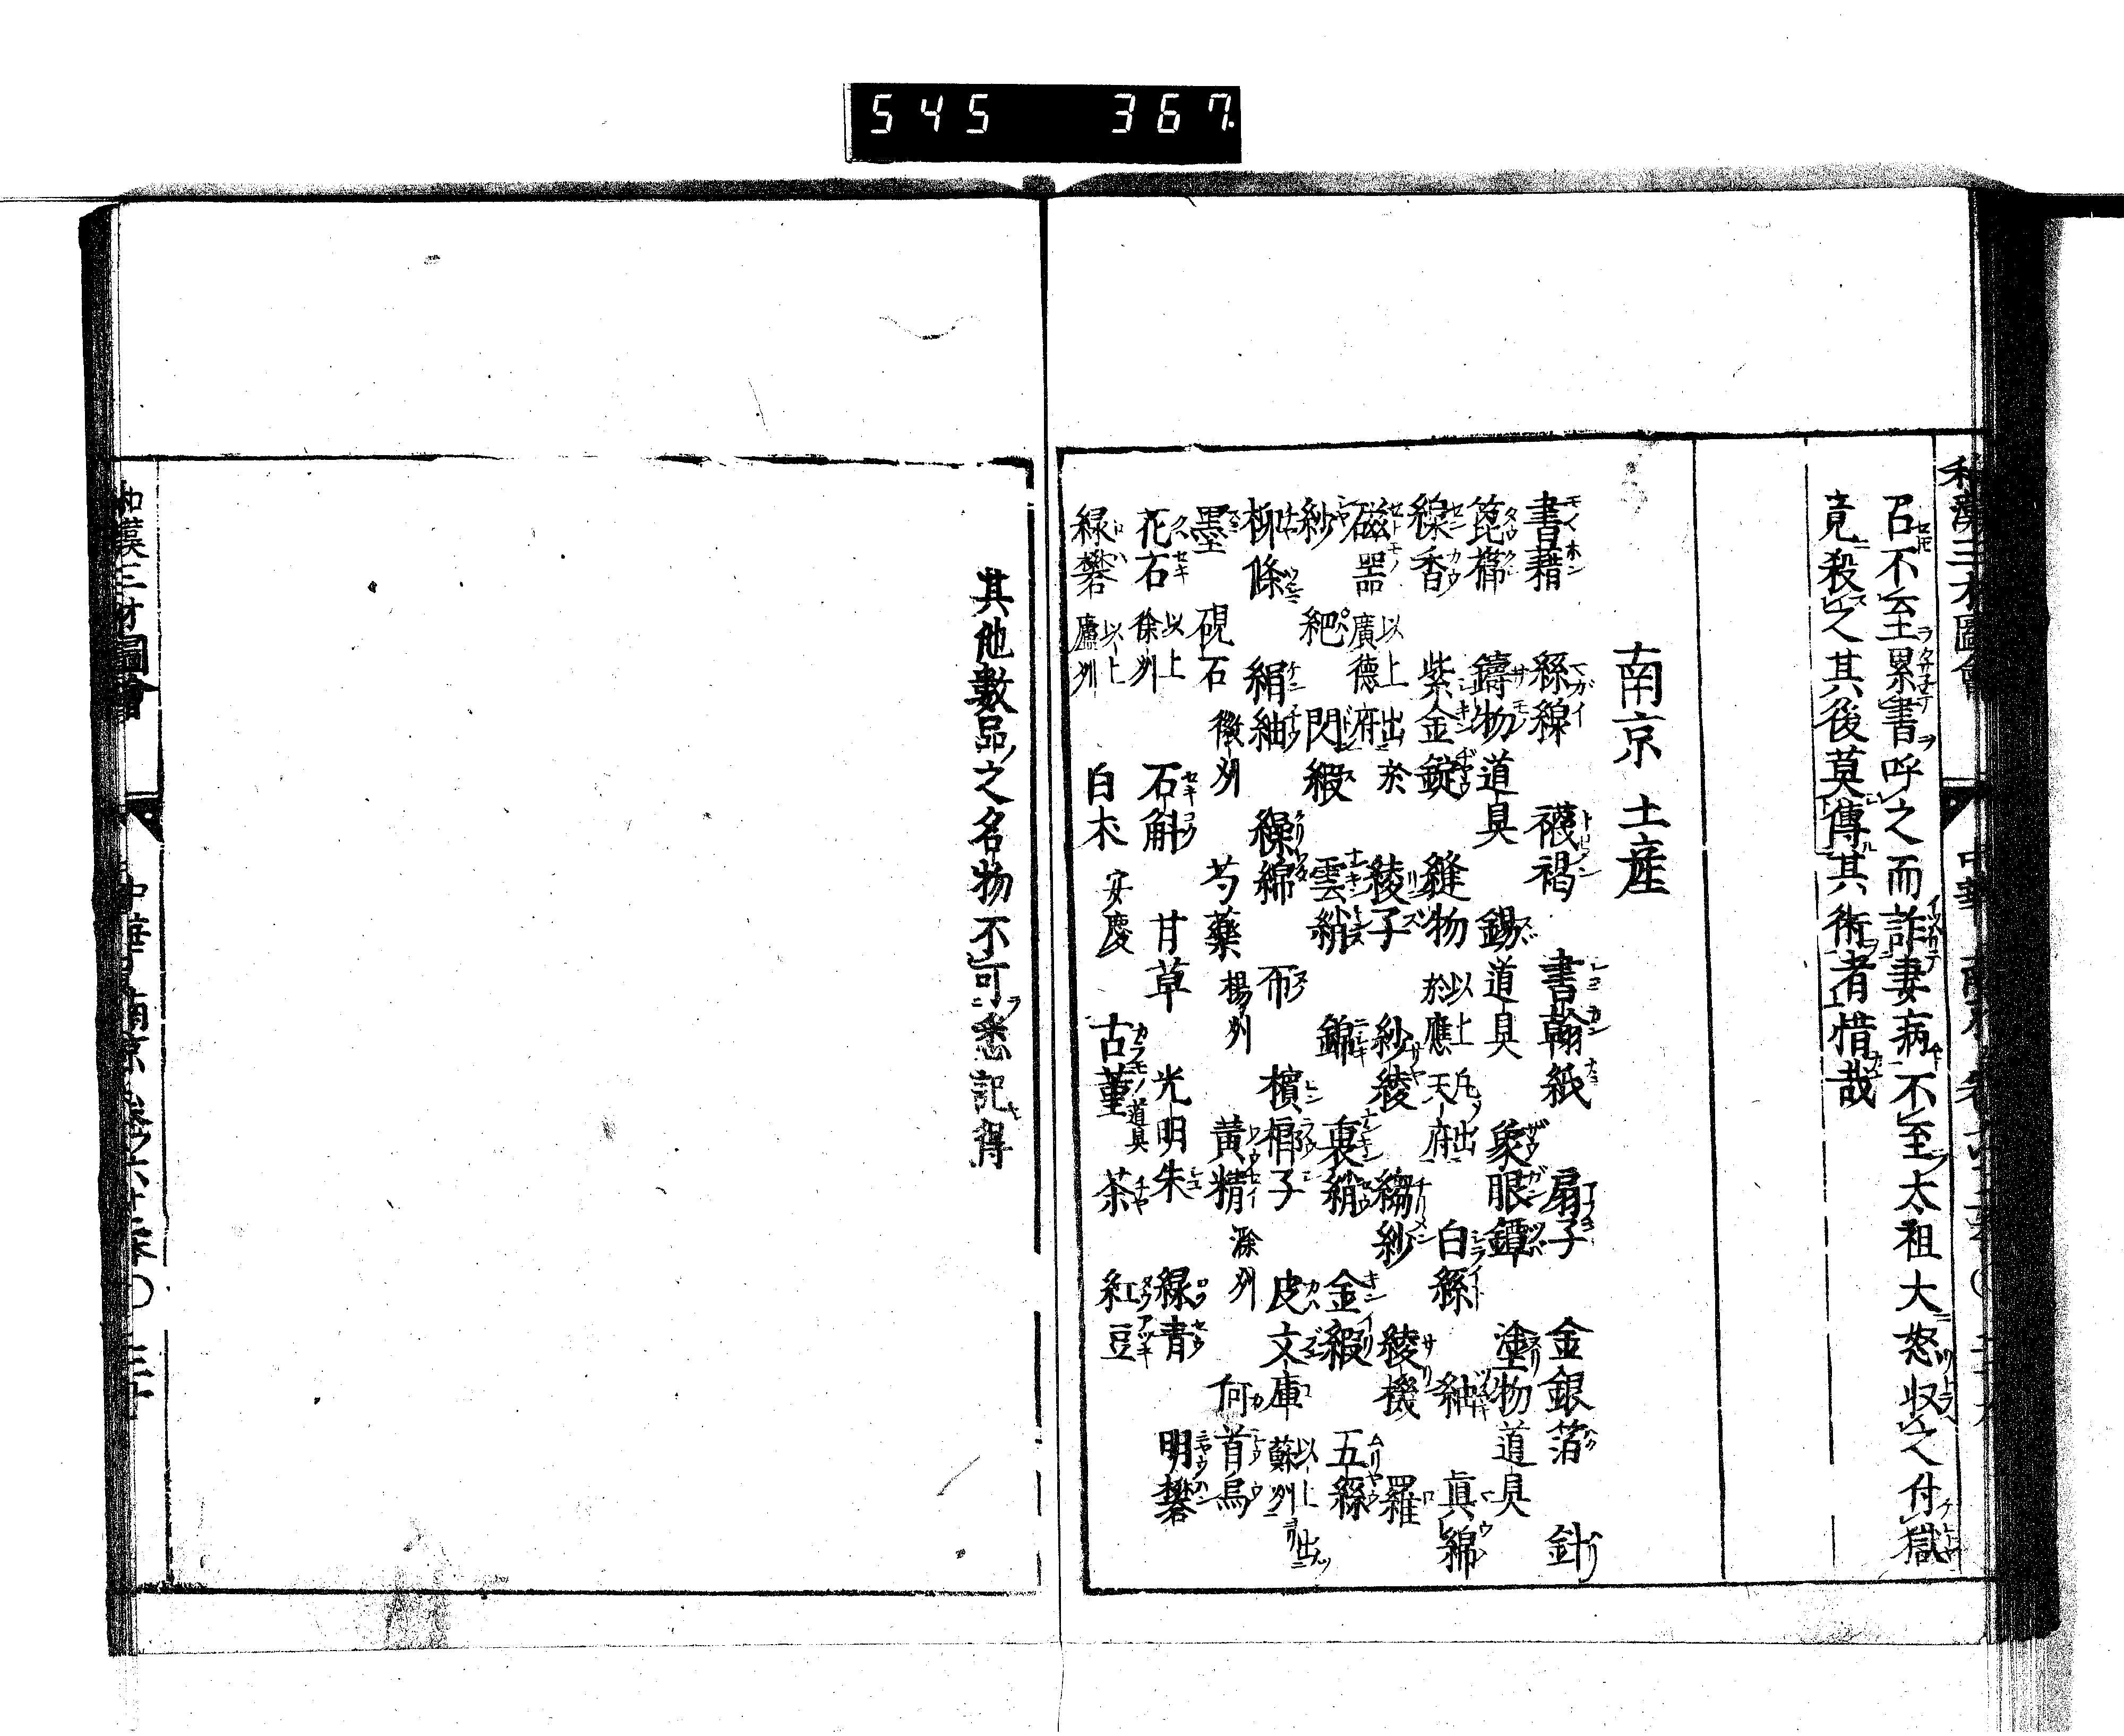 545 367
和漢三才圖會 中華 南京
召不至累書呼之而詐妻病不至太祖大怒収之付獄
竟殺之其後莫傳其術者惜哉
南京 土産
書藉 絲線 襪褐 書翰紙 扇子 金銀箔 針
箆櫛 鑄物道具 錫道具 象眼鐔 塗物道具
線香 紫金錠 縫物 以上凡出於應天府 白絲 紬 真綿
磁器 以上出於廣德府 綾子 紗綾 縐紗 綾機 羅
紗 紦 閃緞 雲綃 錦 裏綃 金緞 五絲
柳條 絹紬 繰綿 布 檳榔子 皮文庫 以上出蘇州
墨 硯石 徽州 芍藥 楊州 黃精 滁州 何首烏
花石 以上徐州 石斛 甘草 光明朱 緑青 明礬
緑礬 以上廬州 白朮 安慶 古董道具 茶 紅豆
其他數品之名物不可悉記得
和漢三才圖會 中華 南京 卷之六十二本 ○ 三十